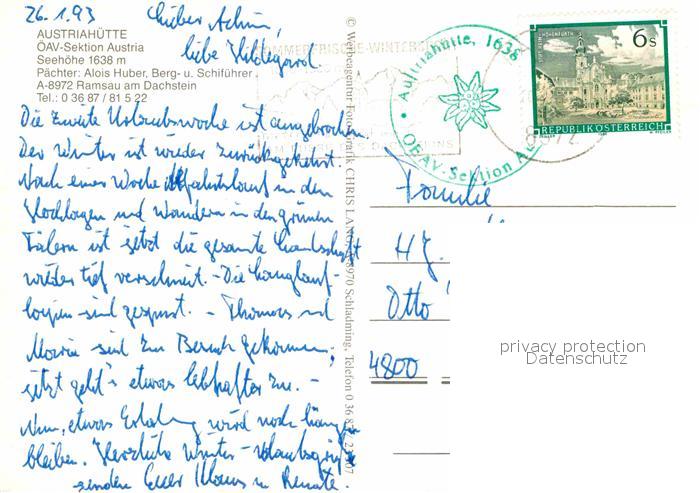 26.1.93
Lieber Achim,
liebe Hildegard
AUSTRIAHÜTTE
ÖAV-Sektion Austria
Seehöhe 1638 m
Pächter: Alois Huber, Berg- u. Schiführer
A-8972 Ramsau am Dachstein
Tel.: 0 36 87 / 81 5 22
Die zweite Urlaubswoche ist angebrochen.
Der Winter ist wieder zurückgekehrt.
Nach einer Woche Abfahrtslauf in den
Hochlagen und Wandern in den grünen
Tälern ist jetzt die gesamte Landschaft
wieder tief verschneit. - Die Langlauf-
loipen sind gespurt. - Thomas und
Maria sind zu Besuch gekommen,
jetzt geht's etwas lebhafter zu. -
Nun, etwas Erholung wird noch hängen
bleiben. Herzliche Winter-Urlaubsgrüße
senden Euer Klaus u. Renate.
© Werbeagentur-Fotografik CHRIS LANG, 8970 Schladming, Telefon 0 36 87 / 2
SOMMERFRISCHE-WINTER
Austriahütte, 1638
ÖAV-Sektion A
STIFT REIN-HOHENFURTH
6 S
REPUBLIK ÖSTERREICH
Familie
HJ.
Otto
4800
privacy protection
Datenschutz